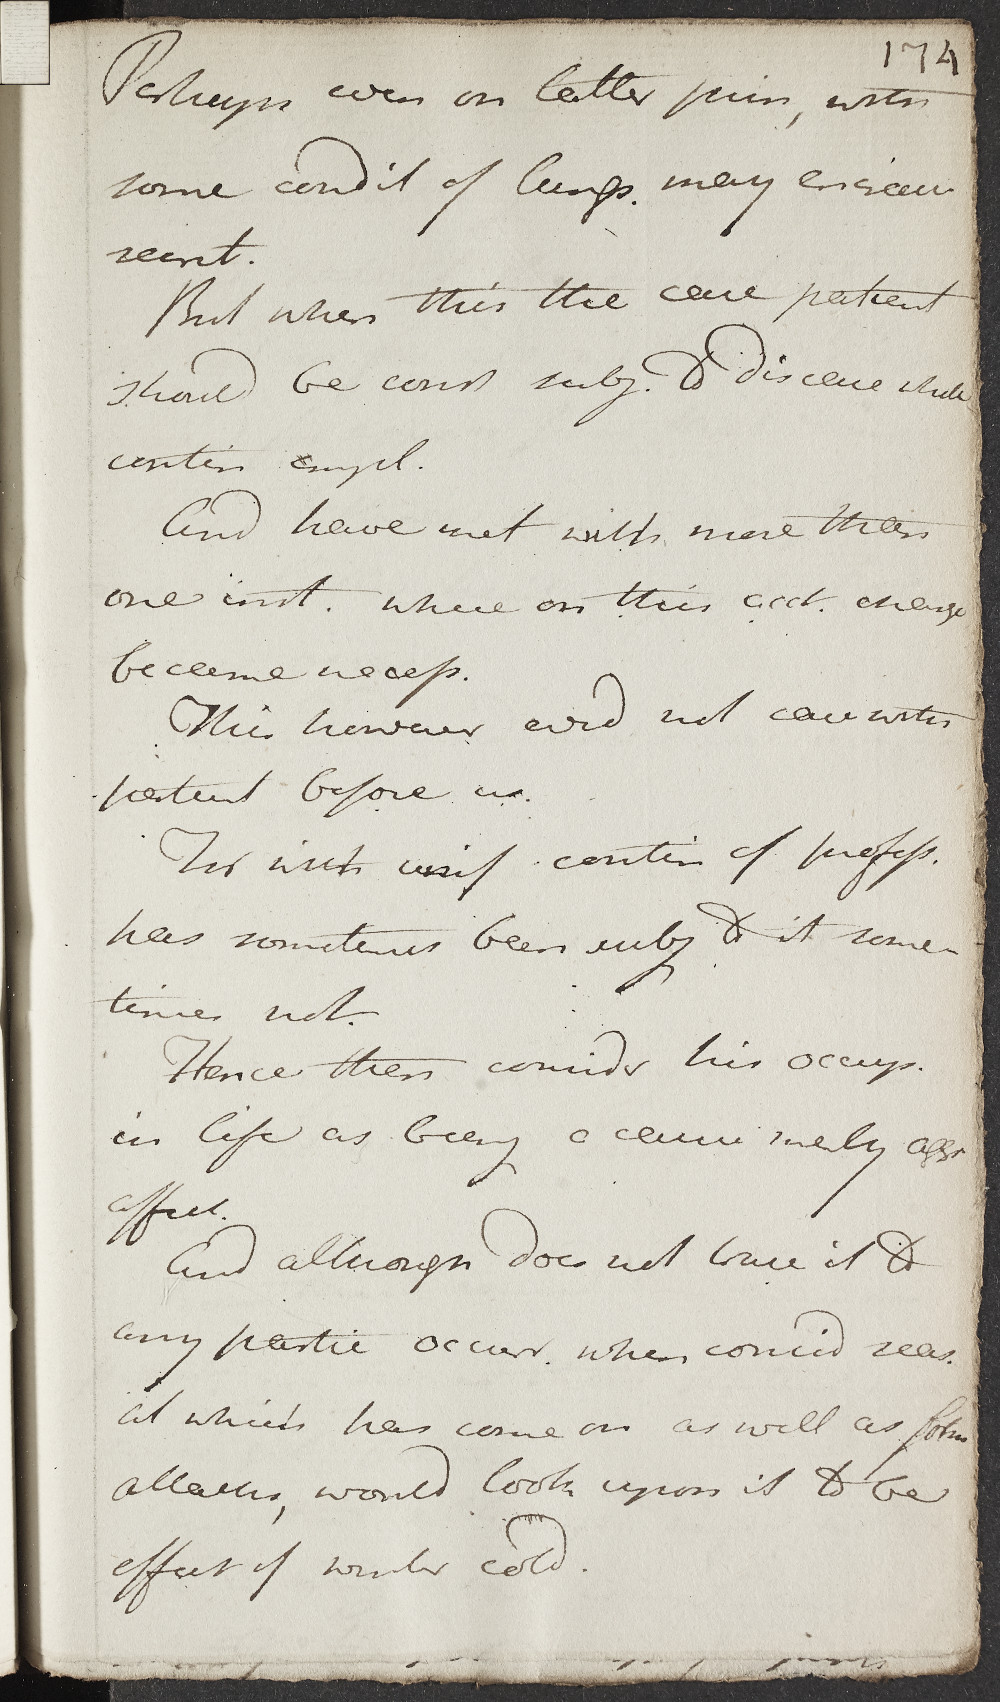 174
Perhaps even on latter prin, with
some condit of lungs. may
resist.
But when this the case patient
should be const subj. to disease while
contin empl.
And have met with more than
one inst. where on this acct. change
became necess.
This however evid not case with
patient before us.
For with unif contin of profess.
has sometimes been subj to it some-
times not.
Hence then consider his occup.
in life as being a cause merely aggr
affect.
And although does not trace it to
any partic occurr. when consid seas.
at which has come on as well as form
attacks, would look upon it to be
effect of winter cold.